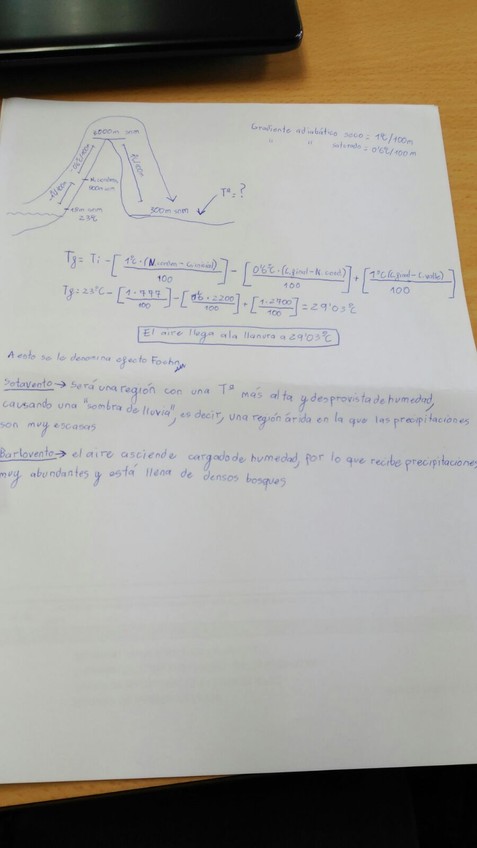 Gradiente adiabático seco = 1ºC/100m
" " saturado = 0'6ºC/100m
T^a = ?
300m snm
23ºC
Tg = Ti - [1ºC·(N.conden - C.inicial)/100] - [0'6ºC·(C.final - N.cond)/100] + [1ºC(C.final - C.valle)/100]
Tg = 23ºC - [1·777/100] - [0'6·2200/100] + [1·2700/100] = 29'03ºC
El aire llega a la llanura a 29'03ºC
A esto se lo denomina efecto Foehn
Sotavento → será una región con una T^a más alta y desprovista de humedad,
causando una "sombra de lluvia", es decir, una región árida en la que las precipitaciones
son muy escasas
Barlovento → el aire asciende cargado de humedad, por lo que recibe precipitaciones
muy abundantes y está llena de densos bosques